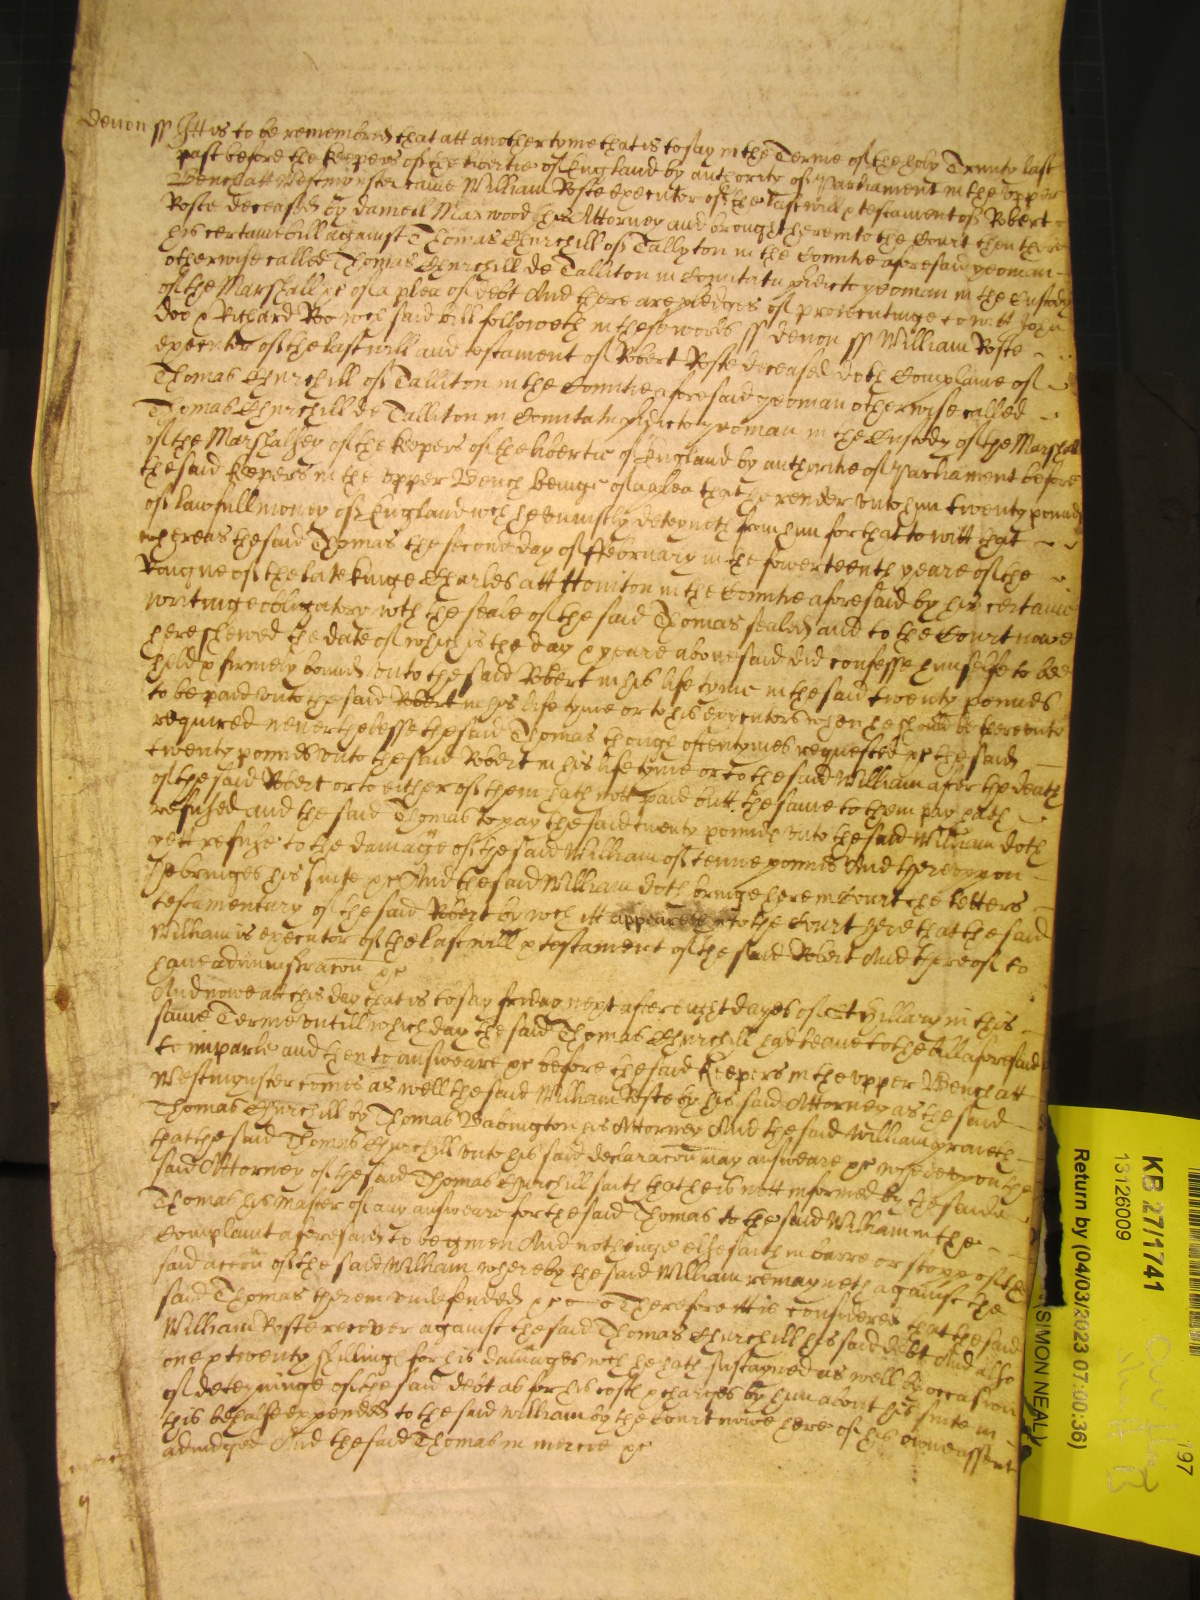 Devon ss Itt is to be remembred that att another tyme that is to say in the Terme of the holy Trinity last
past before the Keepers of the libertie of England by authoritie of Parliament in the upper
Bench att Westminster came William Roste executor of the last will & testament of Robert
Roste deceased by Daniell Maxwood his Attorney and brought here into the Court then there
his certaine bill against Thomas Churchill of Tallyton in the Countie aforesaid yeoman
otherwise called Thomas Churchill de Talliton in Comitatu predicto yeoman in the Custody
of the Marshall &c of a plea of debt And there are pledges of prosecutinge to witt John
Doo & Richard Roo wch said bill followeth in these words ss Devon ss William Roste
executor of the last will and testament of Robert Roste deceased doth Complaine of
Thomas Churchill of Talliton in the Countie aforesaid yeoman otherwise called
Thomas Churchill de Talliton in Comitatu predicto yeoman in the Custody of the Marshall
of the Marshalsey of the Keepers of the libertie of England by authoritie of Parliament before
the said Keepers in the upper Bench beinge of a plea that he render unto him twenty pounds
of lawfull money of England wch he uniustly deteyneth from him for that to witt that
whereas the said Thomas the second day of February in the fowerteenth yeare of the
Raigne of the late Kinge Charles att Honiton in the Countie aforesaid by his certaine
writinge obligatory wth the seale of the said Thomas sealed and to the Court nowe
here shewed the date of which is the day & yeare abovesaid did confesse himselfe to bee
held & firmely bound unto the said Robert in his life tyme in the said twenty pounds
to be paid unto the said Robert in his life tyme or to his executors when he should be thereunto
required neverthelesse the said Thomas though oftentymes requested &c the said
twenty pounds unto the said Robert in his life tyme or to the said William after the death
of the said Robert or to either of them hath nott paid butt the same to them pay hath
refused and the said Thomas to pay the said twenty pounds unto the said William doth
yett refuse to the damage of the said William of tenne pounds And thereupon
he bringes his suite &c And the said William doth bringe here in Court the letters
testamentary of the said Robert by wch itt appeareth to the Court here that the said
William is executor of the last will & testament of the said Robert And thereof to
have administracon &c
And nowe att this day that is to say friday next after eight dayes of St Hillary in this
same Terme untill which day the said Thomas Churchill had leave to the bill aforesaid
to imparle and then to answeare &c before the said Keepers in the upper Bench att
Westminster comes as well the said William Roste by his said Attorney as the said
Thomas Churchill by Thomas Babington his Attorney And the said William prayeth
that the said Thomas Churchill unto his said declaracon may answeare &c whereupon the
said Attorney of the said Thomas Churchill saith that he is nott informed by the said
Thomas his Master of any answeare for the said Thomas to the said William in the
Complaint aforesaid to be given And nothinge else saith in barre or stopp of the
said accon of the said William whereby the said William remayneth against the
said Thomas therein undefended &c Therefore itt is considered that the said
William Roste recover against the said Thomas Churchill his said debt And also
one & twenty shillings for his damages wch he hath sustayned as well by occasion
of deteyninge of the said debt as for his costs & charges by him about his suite in
this behalfe expended to the said William by the Court nowe here of his owne assent
adiudged And the said Thomas in mercie &c
KB 27/1741
13126009
Return by (04/03/2023 07:00:36)
SIMON NEAL)
197